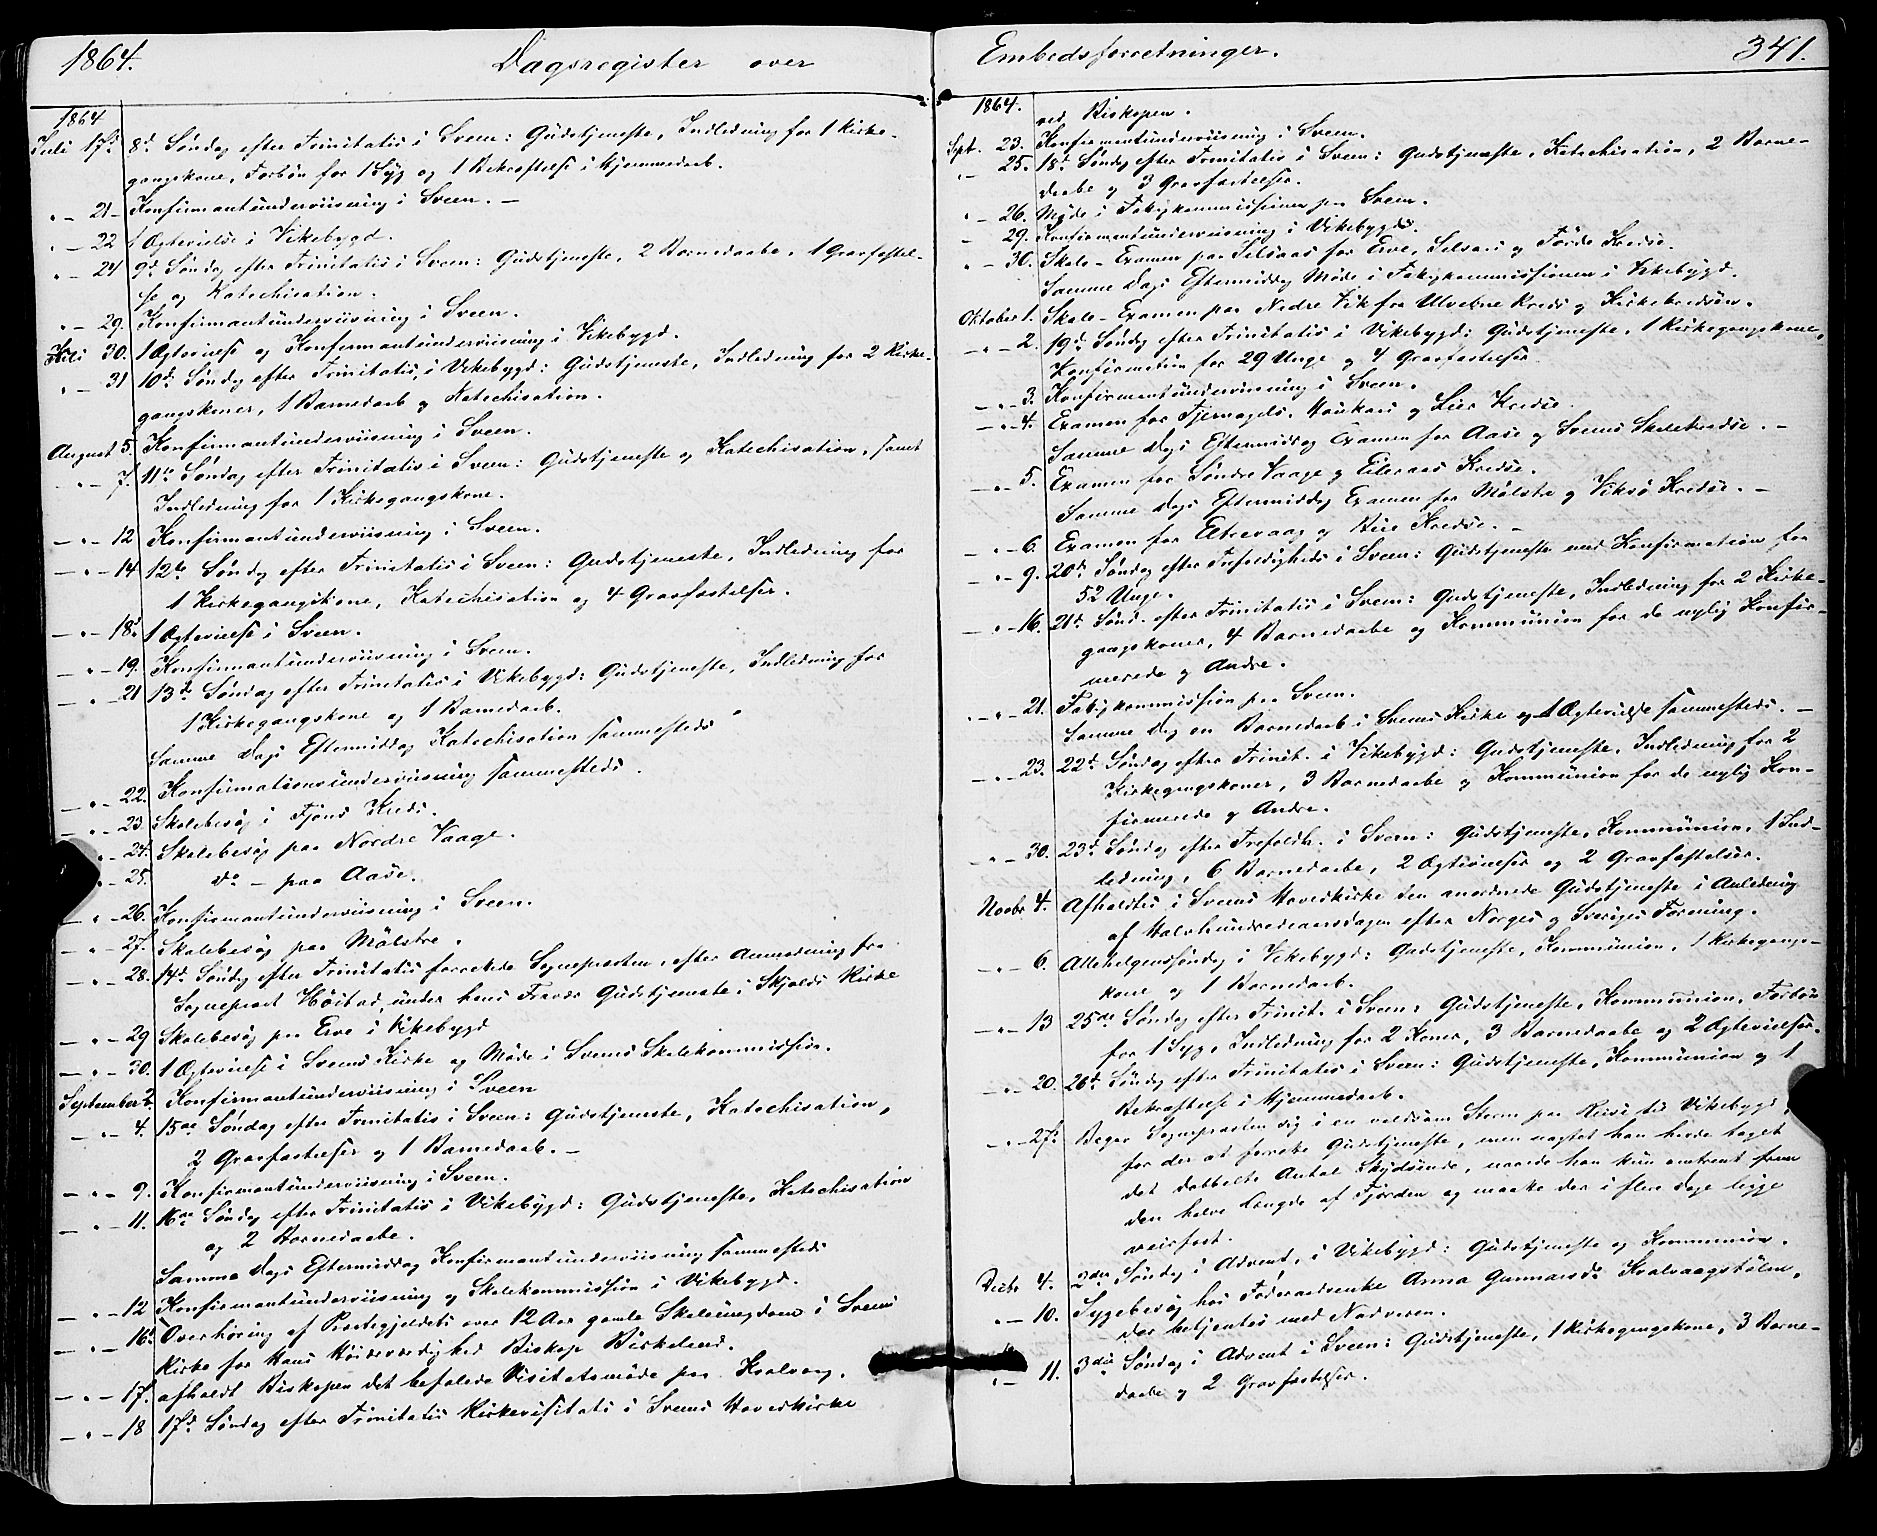 1864. Dagsregister over
1864
Juli 17de 8d Søndag efter Trinitatis i Sveen: Gudstjeneste, Indledning for 1 Kirke-
gangskone, Forbøn for 1 Syg og 1 Bekræftelse i Hjemmedaab.
" – 21 – Konfirmantunderviisning i Sveen. –
" – 22 1 Ægtevielse i Vikebygd.
" – 24 9d Søndag efter Trinitatis i Sveen: Gudstjeneste, 2 Barnedaabe, 1 Gravfæstel-
se og Katechisation.
" – 29. Konfirmantunderviisning i Sveen.
Juli 30. 1 Ægtevielse og Konfirmantunderviisning i Vikebygd.
" – 31 10d Søndag efter Trinitatis, i Vikebygd: Gudstjeneste, Indledning for 2 Kirke-
gangskoner, 1 Barnedaab og Katechisation.
August 5. Konfirmantunderviisning i Sveen.
" – 7. 11te Søndag efter Trinitatis i Sveen: Gudstjeneste og Katechisation, samt
Indledning for 1 Kirkegangskone.
– " – 12 Konfirmantunderviisning i Sveen.
– " – 14 12te Søndag efter Trinitatis i Sveen: Gudstjeneste, Indledning for
1 Kirkegangskone, Katechisation og 4 Gravfæstelser.
– " – 18d 1 Ægtevielse i Sveen.
– " – 19. Konfirmantunderviisning i Sveen.
– " – 21 13de Søndag efter Trinitatis i Vikebygd: Gudstjeneste, Indledning for
1 Kirkegangskone og 1 Barnedaab.
Samme Dags Eftermiddag Katechisation sammesteds
– " – 22. Konfirmationsunderviisning sammesteds.
– " – 23. Skolebesøg i Fjons Kreds.
" – 24. Skolebesøg paa Nordre Vaage.
" – 25. do – paa Aase.
– " – 26. Konfirmantunderviisning i Sveen.
– " – 27. Skolebesøg paa Mølstre.
– " – 28. 14d Søndag efter Trinitatis forrettede Sognepresten, efter Anmodning fra
Sogneprest Høistad, under hans Fravær Gudstjeneste i Skjolds Kirke
– " – 29 Skolebesøg paa Erve i Vikebygd
– " – 30. 1 Ægtevielse i Sveens Kirke og Møde i Sveens Skolekommission.
September 2. Konfirmantunderviisning i Sveen
– " – 4. 15de Søndag efter Trinitatis i Sveen: Gudstjeneste, Katechisation,
2 Gravfæstelser og 1 Barnedaab. –
– " – 9. Konfirmantunderviisning i Sveen.
– " – 11. 16de Søndag efter Trinitatis i Vikebygd: Gudstjeneste, Katechisation
og 2 Barnedaabe.
Samme Dags Eftermiddag Konfirmantunderviisning sammesteds
– " – 12 Konfirmantunderviisning og Skolekommission i Vikebygd.
– " – 16d Overhøring af Prestegjeldets over 12 Aar gamle Skoleungdom i Sveens
Kirke for Hans Høiærværdighed Biskop Birkeland.
– " – 17. afholdt Biskopen det befalede Visitatsmøde paa Kvalvaag.
– " – 18 17d Søndag efter Trinitatis Kirkevisitats i Sveens Hovedkirke
Embedsforretninger. 341.
1864.
ved Biskopen.
Sept. 23. Konfirmantunderviisning i Sveen.
" – 25. 18d Søndag efter Trinitatis i Sveen: Gudstjeneste, Katechisation, 2 Barne-
daabe og 3 Gravfæstelser.
" – 26. Møde i Fattigkommissionen paa Sveen.
– 29. Konfirmantunderviisning i Vikebygd.
" – 30. Skole-Examen paa Silsaas for Erve, Silsaas og Førde Kredse.
Samme Dags Eftermiddag Møde i Fattigkommissionen i Vikebygd.
Oktober 1. Skole-Examen paa Nedre Vik for Ulvebne Kreds og Kirkekredsen.
– " – 2. 19d Søndag efter Trinitatis i Vikebygd: Gudstjeneste, 1 Kirkegangskone,
Konfirmation for 29 Unge og 4 Gravfæstelser.
– " – 3. Konfirmantunderviisning i Sveen.
– " – 4. Examen for Tjernagels, Haukaas og Lier Kredse.
Samme Dags Eftermiddag Examen for Aase og Sveens Skolekredse. –
– " – 5. Examen for Søndre Vaage og Eileraas Kredse.
Samme Dags Eftermiddag Examen for Mølstre og Viksø Kredse. –
– " – 6. Examen for Eltrevaag og Bue Kredse. –
– " – 9. 20d Søndag efter Trefoldigheds i Sveen: Gudstjeneste med Konfirmation for
52 Unge.
– " – 16. 21d Sønd. efter Trinitatis i Sveen: Gudstjeneste, Indledning for 2 Kirke-
gangskoner, 4 Barnedaabe og Kommunion for de nylig Konfir-
merede og Andre.
" – " – 21. Fattigkommission paa Sveen.
Samme Dag en Barnedaab i Sveens Kirke og 1 Ægtevielse sammesteds. –
– " – 23. 22d Søndag efter Trinit. i Vikebygd: Gudstjeneste, Indledning for 2
Kirkegangskoner, 3 Barnedaabe og Kommunion for de nylig Kon-
firmerede og Andre.
– " – 30. 23d Søndag efter Trefoldh. i Sveen: Gudstjeneste, Kommunion, 1 Ind-
ledning, 6 Barnedaabe, 2 Ægtevielser og 2 Gravfæstelser.
Novbr 4. Afholdtes i Sveens Hovedkirke den anordnede Gudstjeneste i Anledning
af Halvhundredeaarsdagen efter Norges og Sveriges Forening.
– " – 6. Allehelgensøndag i Vikebygd: Gudstjeneste, Kommunion, 1 Kirkegangs-
kone og 1 Barnedaab.
– " – 13 25de Søndag efter Trinit. i Sveen: Gudstjeneste, Kommunion, Forbøn
for 1 Syg, Indledning for 2 Koner, 3 Barnedaabe og 2 Ægtevielser.
" – 20. 26d Søndag efter Trinitatis i Sveen: Gudstjeneste, Kommunion og 1
Bekræftelse i Hjemmedaab.
– " – 27de Begav Sognepresten sig i en voldsom Storm paa Reise til Vikebygd,
for der at forrette Gudstjeneste, men uagtet han havde taget
det dobbelte Antal Skydsende, naaede han kun omtrent frem
den halve Længde af Fjorden og maatte der i flere Dage ligge
veirfast.
Decbr 4. 2den Søndag i Advent, i Vikebygd: Gudstjeneste og Kommunion.
" – 10. Sygebesøg hos Føderaadsenke Anna Gunnarsdr Kvalvaagstølen,
der betjentes med Nadveren.
" – 11. 3die Søndag i Advent i Sveen: Gudstjeneste, 1 Kirkegangskone, 3 Barne-
daabe og 2 Gravfæstelser.